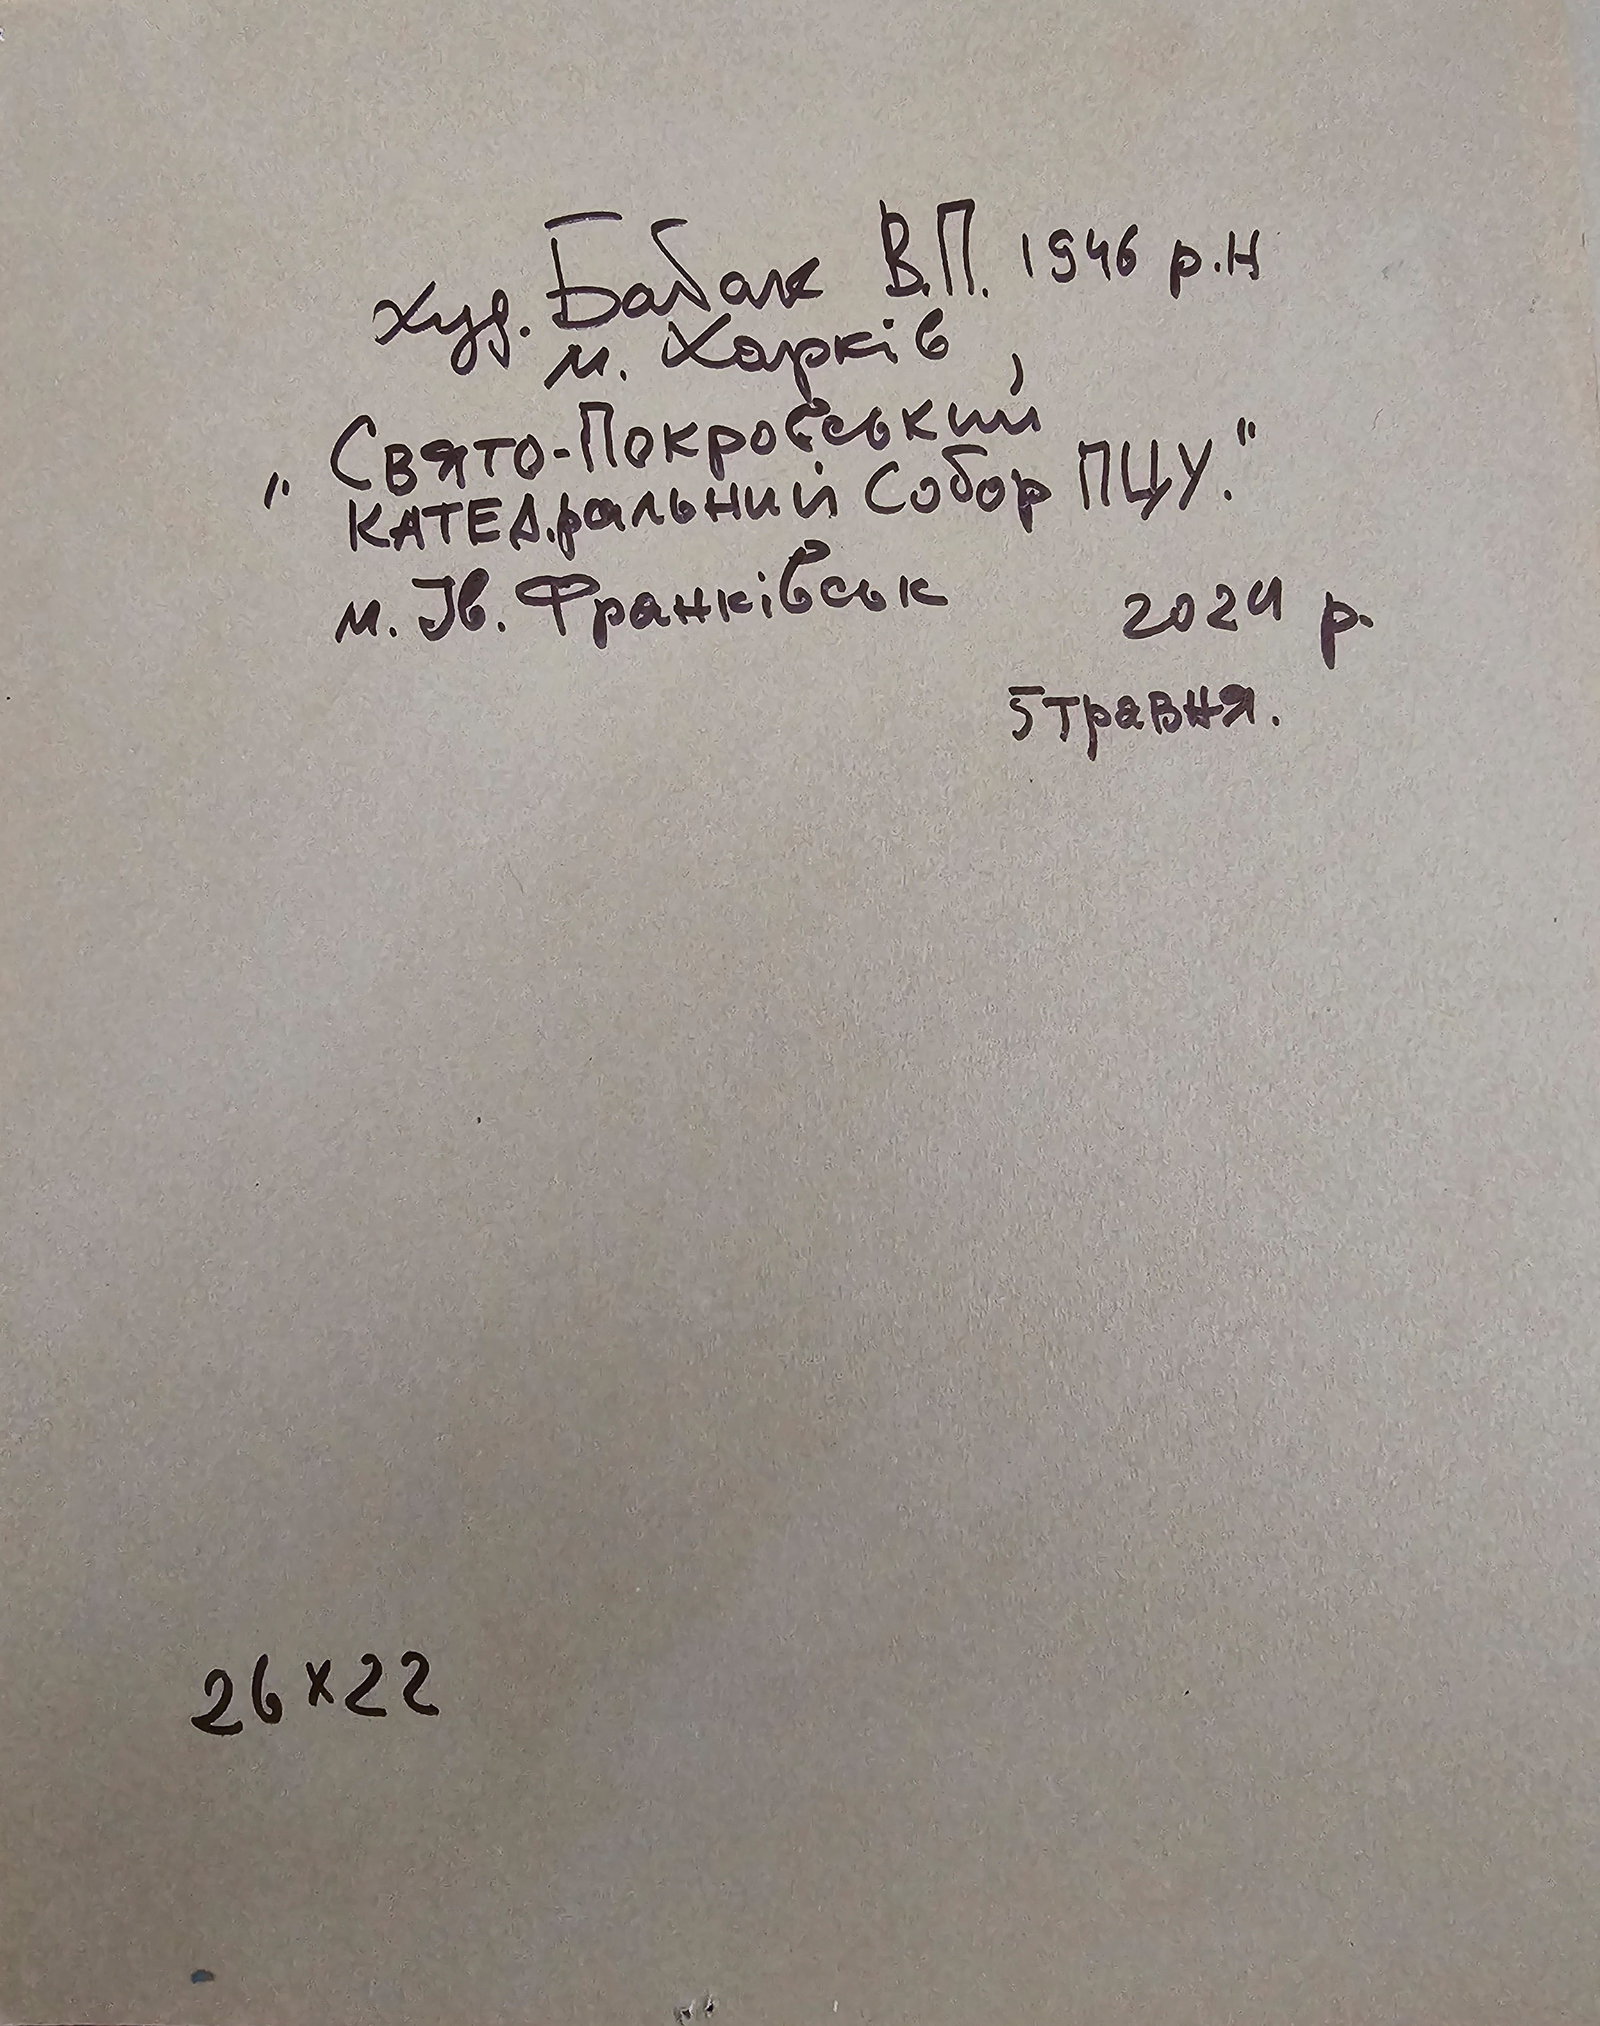 худ. Бабак В.П. 1946 р.н
м. Харків,
„Свято-Покровський
катед.ральний Собор ПЦУ."
м. Ів. Франківськ 2024 р.
5 травня.
26x22